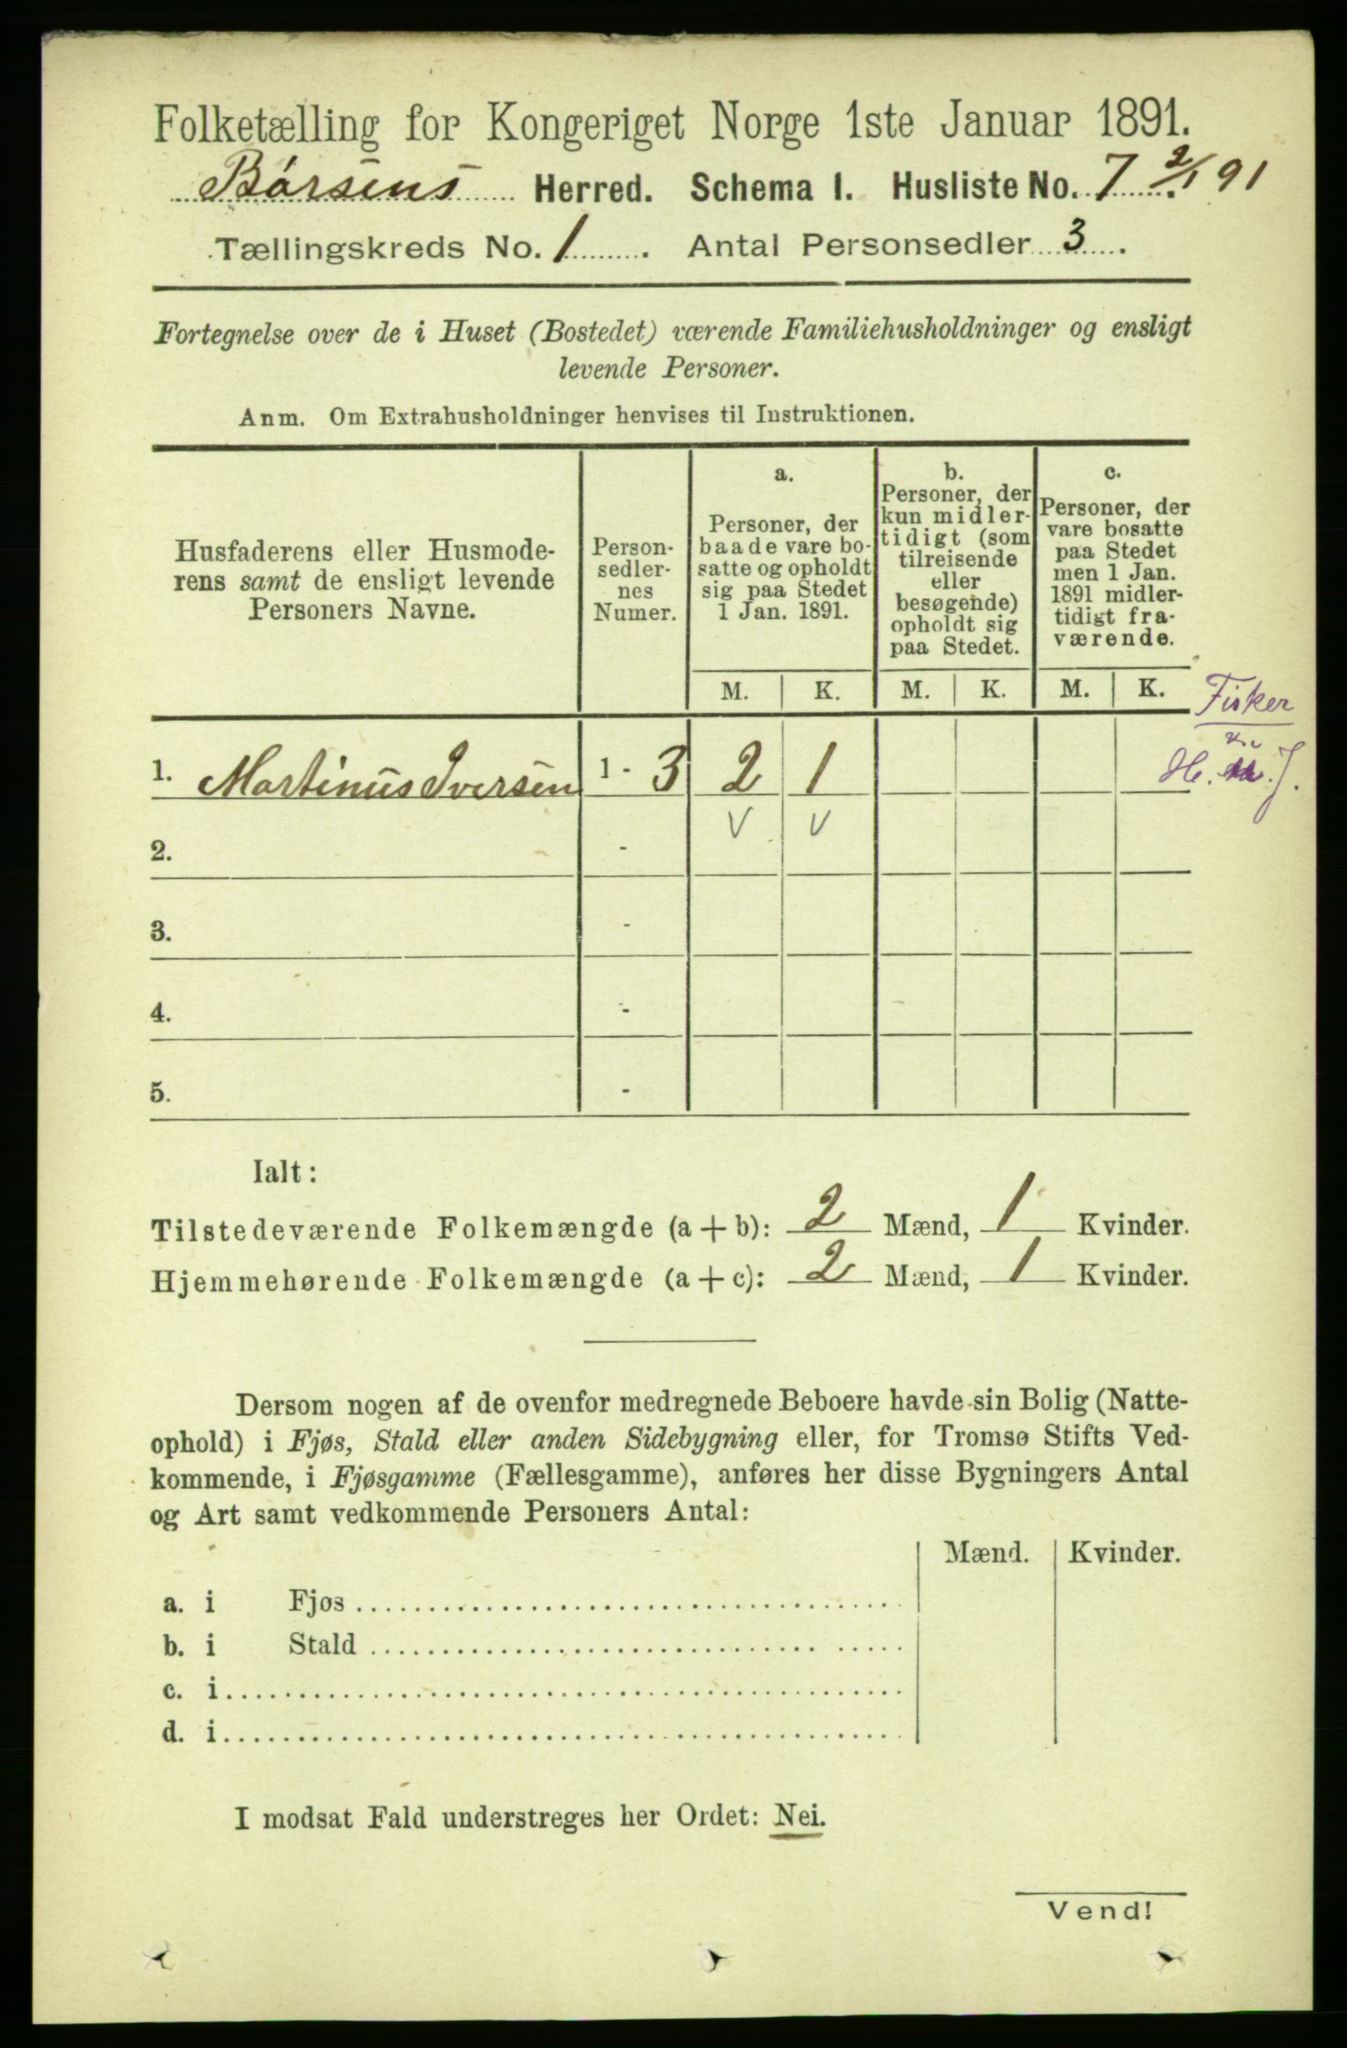 Folketælling for Kongeriget Norge 1ste Januar 1891.
Børsens Herred. Schema I. Husliste No. 7 2/1 91
Tællingskreds No. 1. Antal Personsedler 3.
Fortegnelse over de i Huset (Bostedet) værende Familiehusholdninger og ensligt
levende Personer.
Anm. Om Extrahusholdninger henvises til Instruktionen.
Husfaderens eller Husmode-
rens samt de ensligt levende
Personers Navne.
Person-
sedler-
nes
Numer.
a.
Personer, der
baade vare bo-
satte og opholdt
sig paa Stedet
1 Jan. 1891.
b.
Personer, der
kun midler-
tidigt (som
tilreisende
eller
besøgende)
opholdt sig
paa Stedet.
c.
Personer, der
vare bosatte
paa Stedet
men 1 Jan.
1891 midler-
tidigt fra-
værende.
M. K. M. K. M. K.
Fisker
1. Martinus Iversen 1 - 3 2 1
H. J.
v v
2. -
3. -
4. -
5. -
Ialt:
Tilstedeværende Folkemængde (a + b): 2 Mænd, 1 Kvinder.
Hjemmehørende Folkemængde (a + c): 2 Mænd, 1 Kvinder.
Dersom nogen af de ovenfor medregnede Beboere havde sin Bolig (Natte-
ophold) i Fjøs, Stald eller anden Sidebygning eller, for Tromsø Stifts Ved-
kommende, i Fjøsgamme (Fællesgamme), anføres her disse Bygningers Antal
og Art samt vedkommende Personers Antal:
Mænd. Kvinder.
a. i Fjøs
b. i Stald
c. i
d. i
I modsat Fald understreges her Ordet: Nei.
Vend!